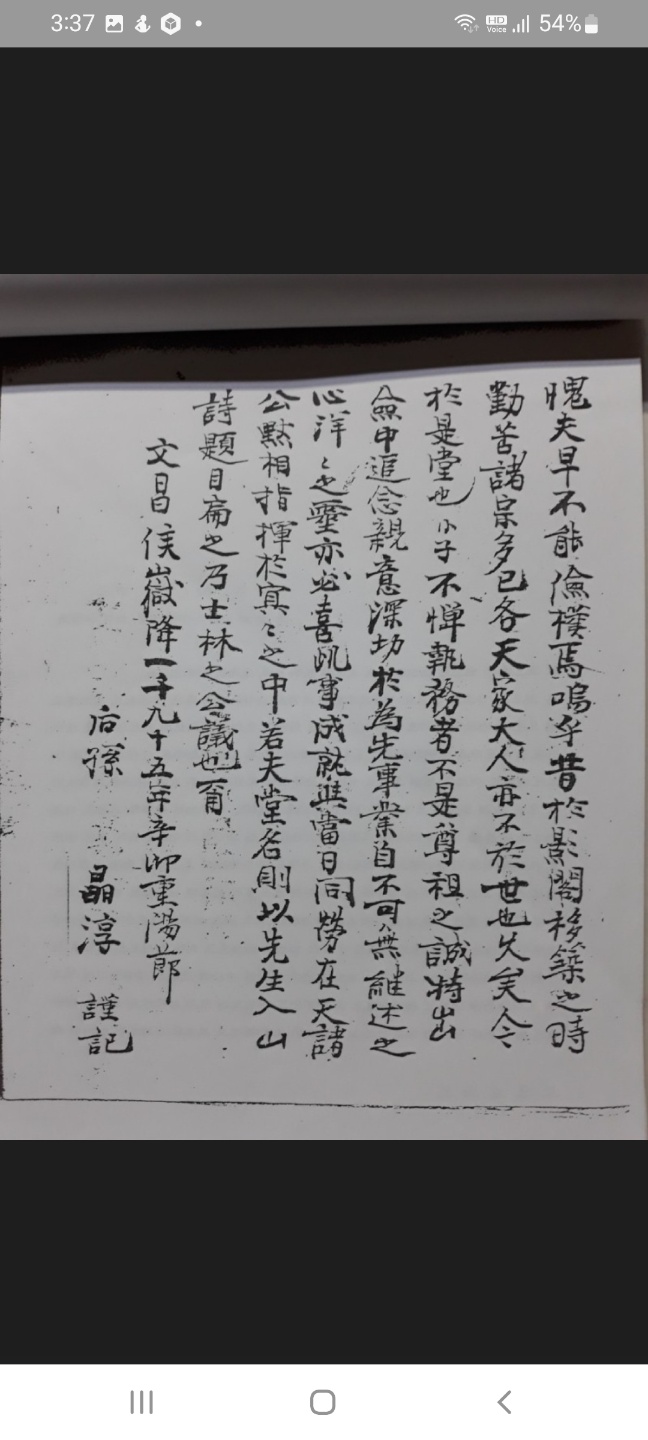 3:37
HD Voice
54%
愧夫早不能儉樸焉嗚乎昔於影閣移築之時
勤苦諸宗多已各天家大人亦不於世也久矣今
於是堂也小子不憚執務者不是尊祖之誠特出
僉中追念親意深切於為先事業自不可無継述之
心洋々之靈亦必喜此事成就與當日同勞在天諸
公黙相指揮於冥々之中若夫堂名則以先生入山
詩題目扁之乃士林之公議也爾
文昌侯嶽降一千九十五年辛卯重陽節
后孫 晶淳 謹記